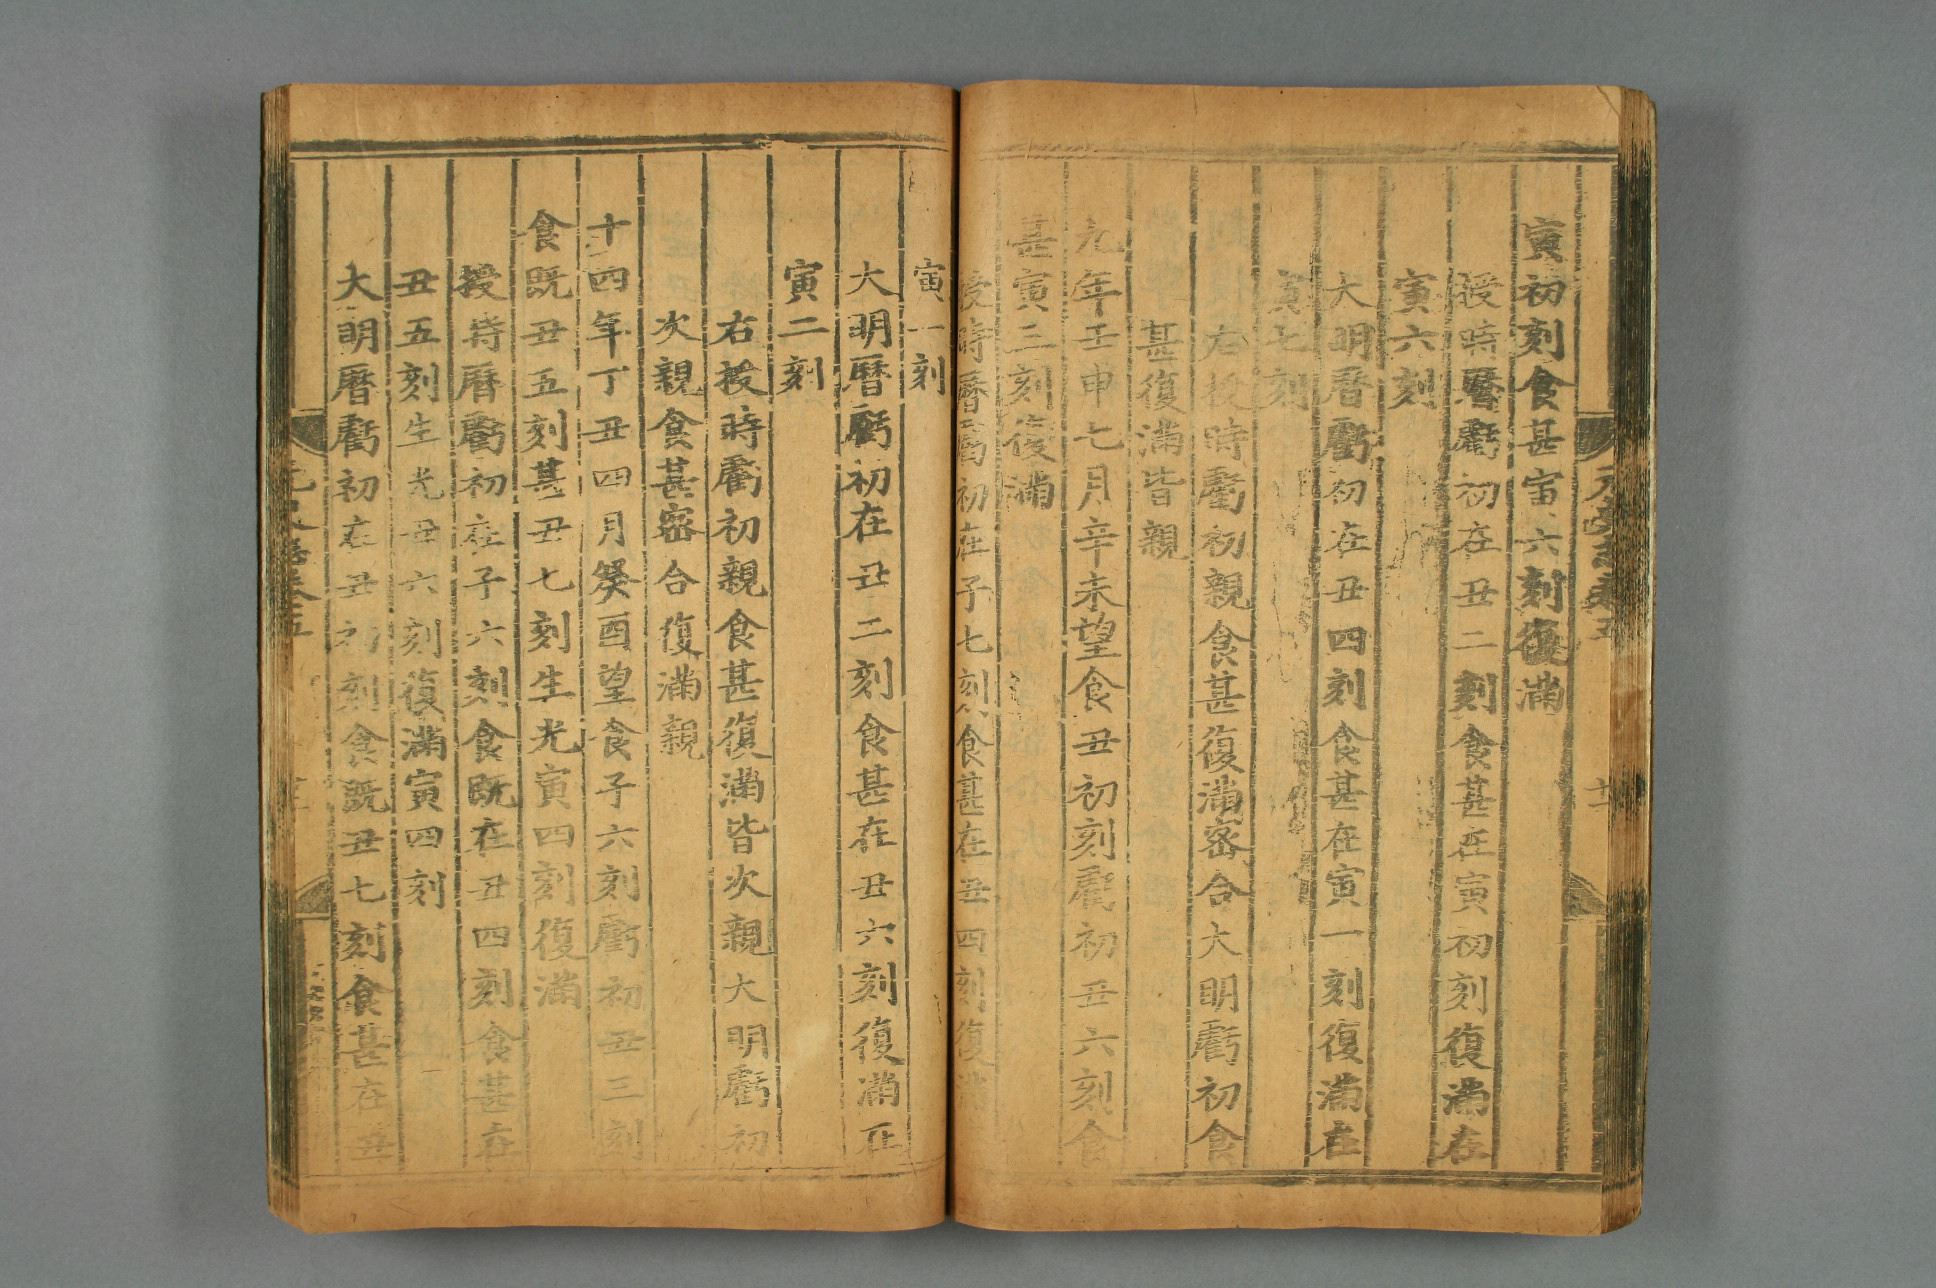 寅初刻食甚寅六刻復滿
授時曆虧初在丑二刻食甚在寅初刻復滿在
寅六刻
大明曆虧初在丑四刻食甚在寅一刻復滿在
寅七刻
右授時虧初親食甚復滿密合大明虧初食
甚復滿皆親
元年壬申七月辛未望食丑初刻虧初丑六刻食
甚寅三刻復滿
授時曆虧初在子七刻食甚在丑四刻復滿
寅一刻
大明曆虧初在丑二刻食甚在丑六刻復滿在
寅二刻
右授時虧初親食甚復滿皆次親大明虧初
次親食甚密合復滿親
十四年丁丑四月癸酉望食子六刻虧初丑三刻
食既丑五刻甚丑七刻生光寅四刻復滿
授時曆虧初在子六刻食既在丑四刻食甚在
丑五刻生光丑六刻復滿寅四刻
大明曆虧初在丑初刻食既丑七刻食甚在丑
元史志卷五